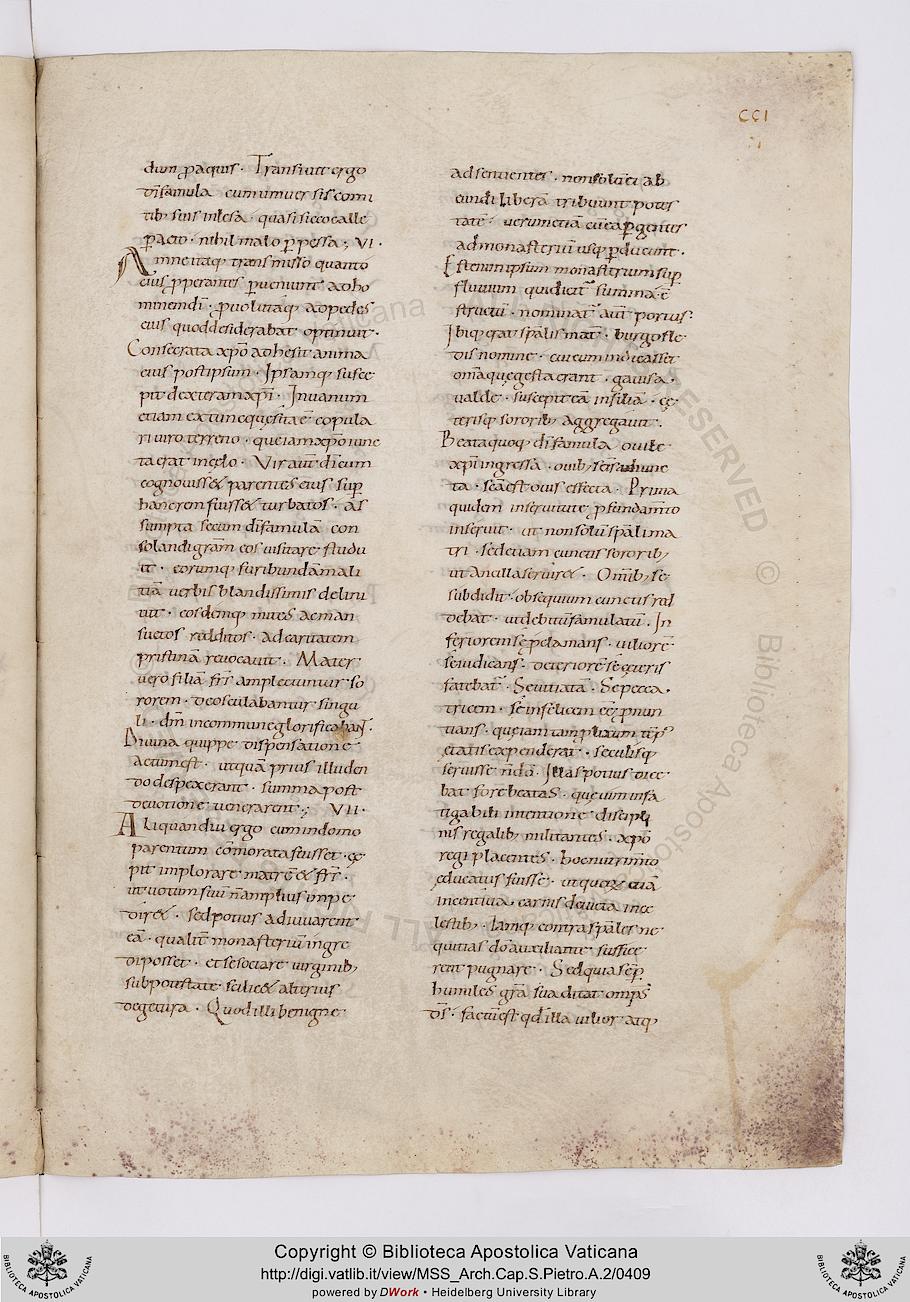 CCI
dum p aquis · Transiuit ergo
dī famula cum uniuersis comi
tib; suis inlesa · quasi sicco calle
p acto · nihil mali ppessa ; VI ·
Amne itaq; transmisso quanto
cius pperantes pueniunt ad ho
minem dī · puolutaq; ad pedes
eius quod desiderabat optinuit ·
Consecrata xpo adhesit anima
eius post ipsum · Ipsamq; susce
pit dextera xpi · In uanum
etiam ex tunc quesita ē copula
ri uiro terreno · que iam xpo iunc
ta erat in celo · Vir aut dī cum
cognouiss& parentes eius sup
hanc rem fuiss& turbatos · as
sumpta secum dī famula con
solandi gram eos uisitare studu
it · eorumq; furibundam ali
tiā uerbis blandissimis delini
uit · eosdemq; mites ac man
suetos redditos · ad caritatem
pristinā reuocauit · Mater
uero filiā frs amplectuntur so
rorem · deosculabantur singu
li · dm in commune glorificabant ·
Diuina quippe dispensatione
actum est · ut quā prius illuden
do despexerant · summa post
deuotione uenerarent ; VII ·
Aliquandiu ergo cum in domo
parentum commorata fuisset · cę
pit implorare matrē & frs ·
ut uotum suū n amplius impe
dir& · sed potius adiuuarent
eā · qualit monasteriū ingre
di posset · et se sociare uirginib;
sub potestate scilic& alterius
degetura · Quod illi benigne
adsentientes · non solū ei ab
eundi liberā tribuunt potes
tatē · uerum etiā cū ea pgentes
ad monasteriū usq; pducunt ·
Est enim ipsum monasterium sup
fluuium qui dicit summa ē
structū · nominat aut portus ·
Ibiq; erat spalis mat · burgofle
dis nomine · cui cum indicasset
oma quę gesta erant · gauisa
ualde · suscepit eā in filiā · cę
terisq; sororib; aggregauit ·
Beata quoq; dī famula ouile
xpi ingressa · ouib; scis adiunc
ta · scā est ouis effecta · Prima
quidem in seruitute p fundamto
inseruit · ut non solū spali ma
tri · sed etiam cunctis sororib;
ut ancilla seruir& · Omib; se
subdidit · obsequium cunctis red
debat · ut debitū famulatū · In
feriorem se pclamans · uiliorē
se iudicans · deteriorē se ceteris
fatebat · Se uitiatā · Se pecca
tricem · se infelicem eē pnun
tians · que iam tam plurimum tēps
etatis expenderat · seculisq;
seruisse ndā · Illas potius dice
bat fore beatas · que cum infa
tigabili intentione discipli
nis regalib; militantes · xpo
regi placentes · hoc nutrimto
educatus fuisse · ut que & tiā
incentiua carnis deuicta in ce
lestib; · lamq; contra spales ne
quitias do auxiliante · suffice
rent pugnare · Sed quia semp
humiles gra sua ditat omps
ds · factū est qd illa uilior atq;
Copyright © Biblioteca Apostolica Vaticana
http://digi.vatlib.it/view/MSS_Arch.Cap.S.Pietro.A.2/0409
powered by DWork • Heidelberg University Library
BIBLIOTECA APOSTOLICA VATICANA
BIBLIOTECA APOSTOLICA VATICANA